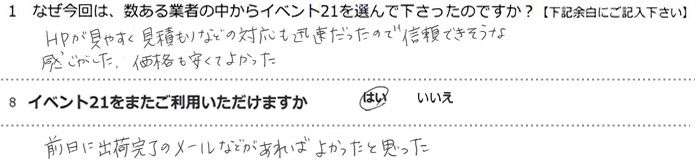 1 なぜ今回は、数ある業者の中からイベント21を選んで下さったのですか？【下記余白にご記入下さい】
HPが見やすく見積もりなどの対応も迅速だったので信頼できそうな
感じがした、価格も安くてよかった
8 イベント21をまたご利用いただけますか はい いいえ
前日に出荷完了のメールなどがあればよかったと思った